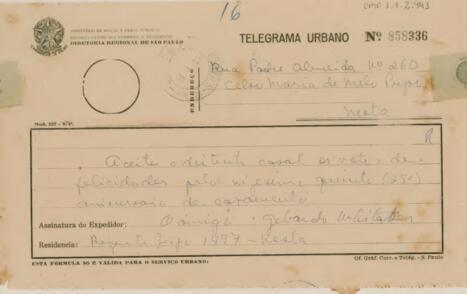 16
CMP. 1.1.2.943
MINISTÉRIO DA VIAÇÃO E OBRAS PÚBLICAS
DEPARTAMENTO DOS CORREIOS E TELÉGRAFOS
DIRETORIA REGIONAL DE SÃO PAULO
TELEGRAMA URBANO Nº 858336
ENDEREÇO
Rua Padre Almeida nº 260
Celso Maria de Melo Pupo
Nesta
Mod. 127
R
Aceite o distinto casal os votos de
felicidades pelo vigesimo quinto (25º)
aniversario de casamento
Assinatura do Expedidor: O amigo: Gebardo
Residencia: Regente Feijó 1497 - Nesta
ESTA FÓRMULA SÓ É VÁLIDA PARA O SERVIÇO URBANO:
Of. Gráf. Corr. e Telég. - S. Paulo